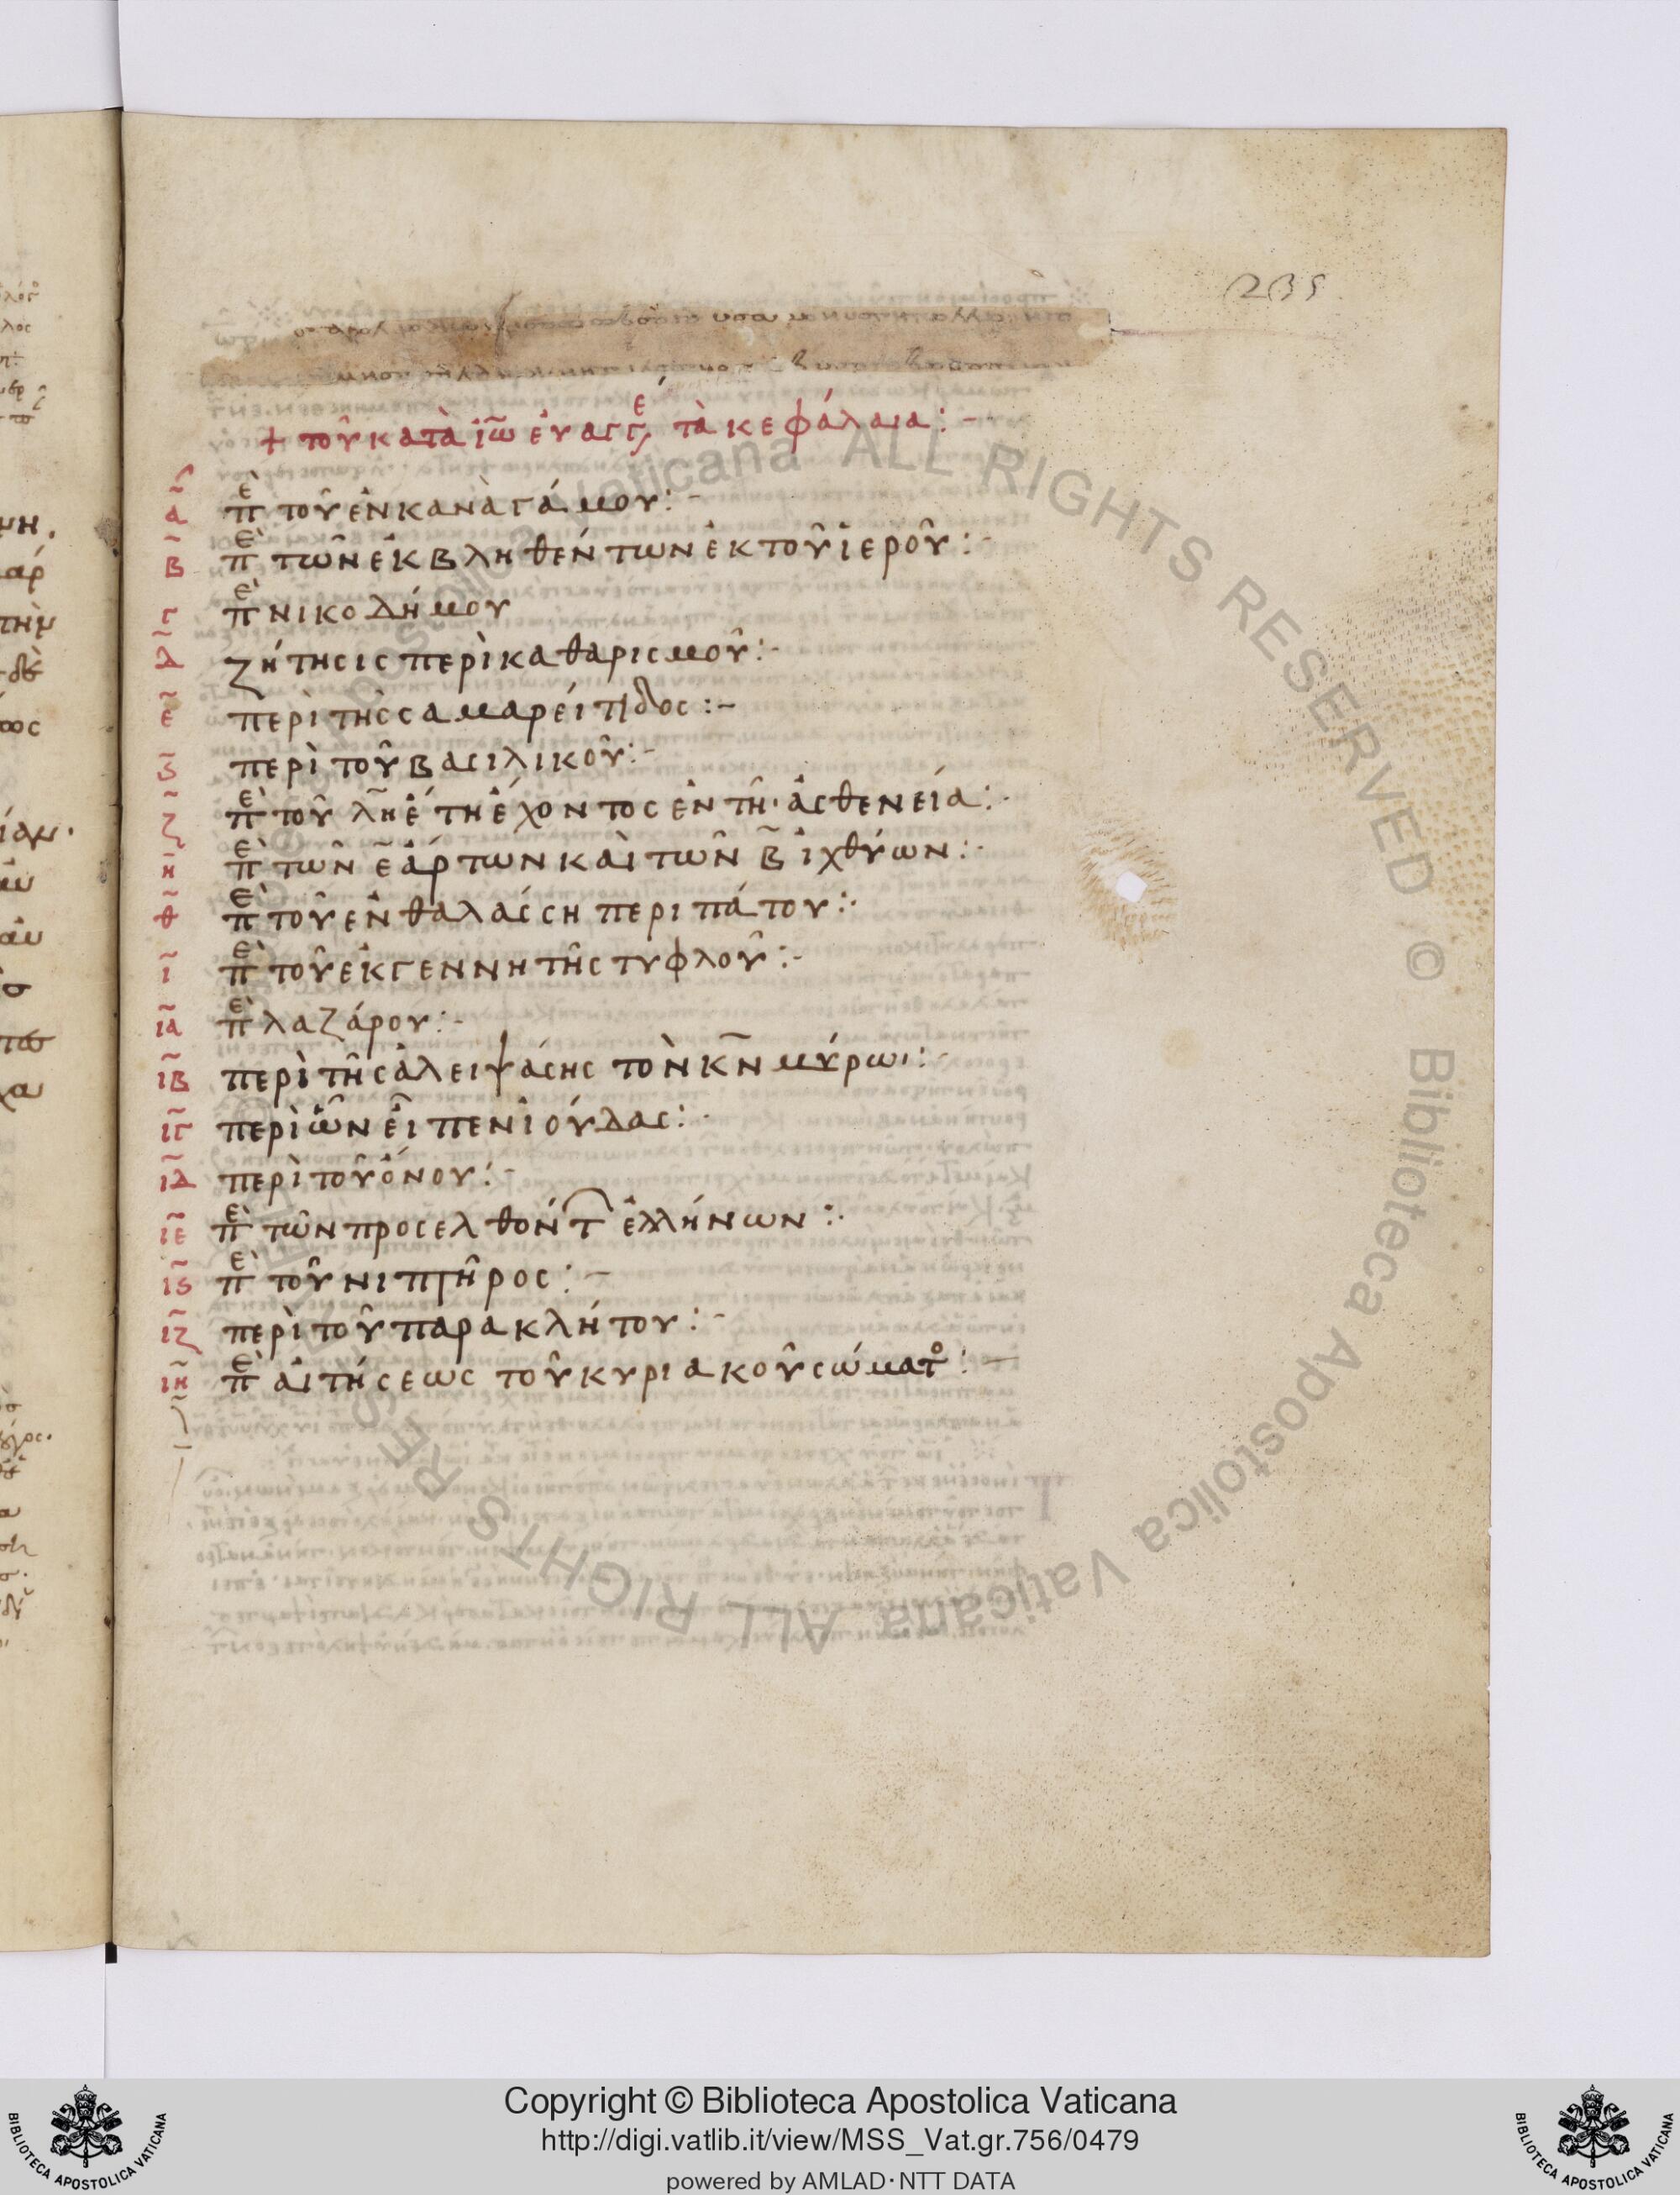 235
+ τοῦ κατὰ ἰω̃ ἐυαγγέ τὰ κεφάλαια :-
α̃ πὲ τοῦ ἐν κανὰ γάμου :-
β̃ πὲ τῶν ἐκβληθέντων ἐκ τοῦ ἱεροῦ :-
γ̃ πὲ νικοδήμου
δ̃ ζήτησις περὶ καθαρισμοῦ :-
ε̃ περὶ τῆς σαμαρείτιδος :-
ς̃ περὶ τοῦ βασιλικοῦ :-
ζ̃ πὲ τοῦ λη̃ ἔτη ἔχοντος ἐν τῆ· ἀσθενεία :-
η̃ πὲ τῶν ε̃ ἄρτων καὶ τῶν β̃ ἰχθύων :-
θ̃ πὲ τοῦ ἐν θαλάσση περιπάτου :-
ι̃ πὲ τοῦ ἐκ γεννητῆς τυφλοῦ :-
ια̃ πὲ λαζάρου :-
ιβ̃ περὶ τῆς ἀλειψάσης τὸν κ̃ν μύρωι :-
ιγ̃ περὶ ὧν εἶπεν ἰούδας :-
ιδ̃ περὶ τοῦ ὄνου :-
ιε̃ πὲ τῶν προσελθόντ ἑλλήνων :-
ις̃ πὲ τοῦ νιπτῆρος :-
ιζ̃ περὶ τοῦ παρακλήτου :-
ιη̃ πὲ αἰτήσεως τοῦ κυριακοῦ σώματο :-
Apostolica Vaticana ALL RIGHTS RESERVED © Biblioteca Apostolica Vaticana ALL RIGHTS RESERVED
Copyright © Biblioteca Apostolica Vaticana
http://digi.vatlib.it/view/MSS_Vat.gr.756/0479
powered by AMLAD·NTT DATA
BIBLIOTECA APOSTOLICA VATICANA
BIBLIOTECA APOSTOLICA VATICANA